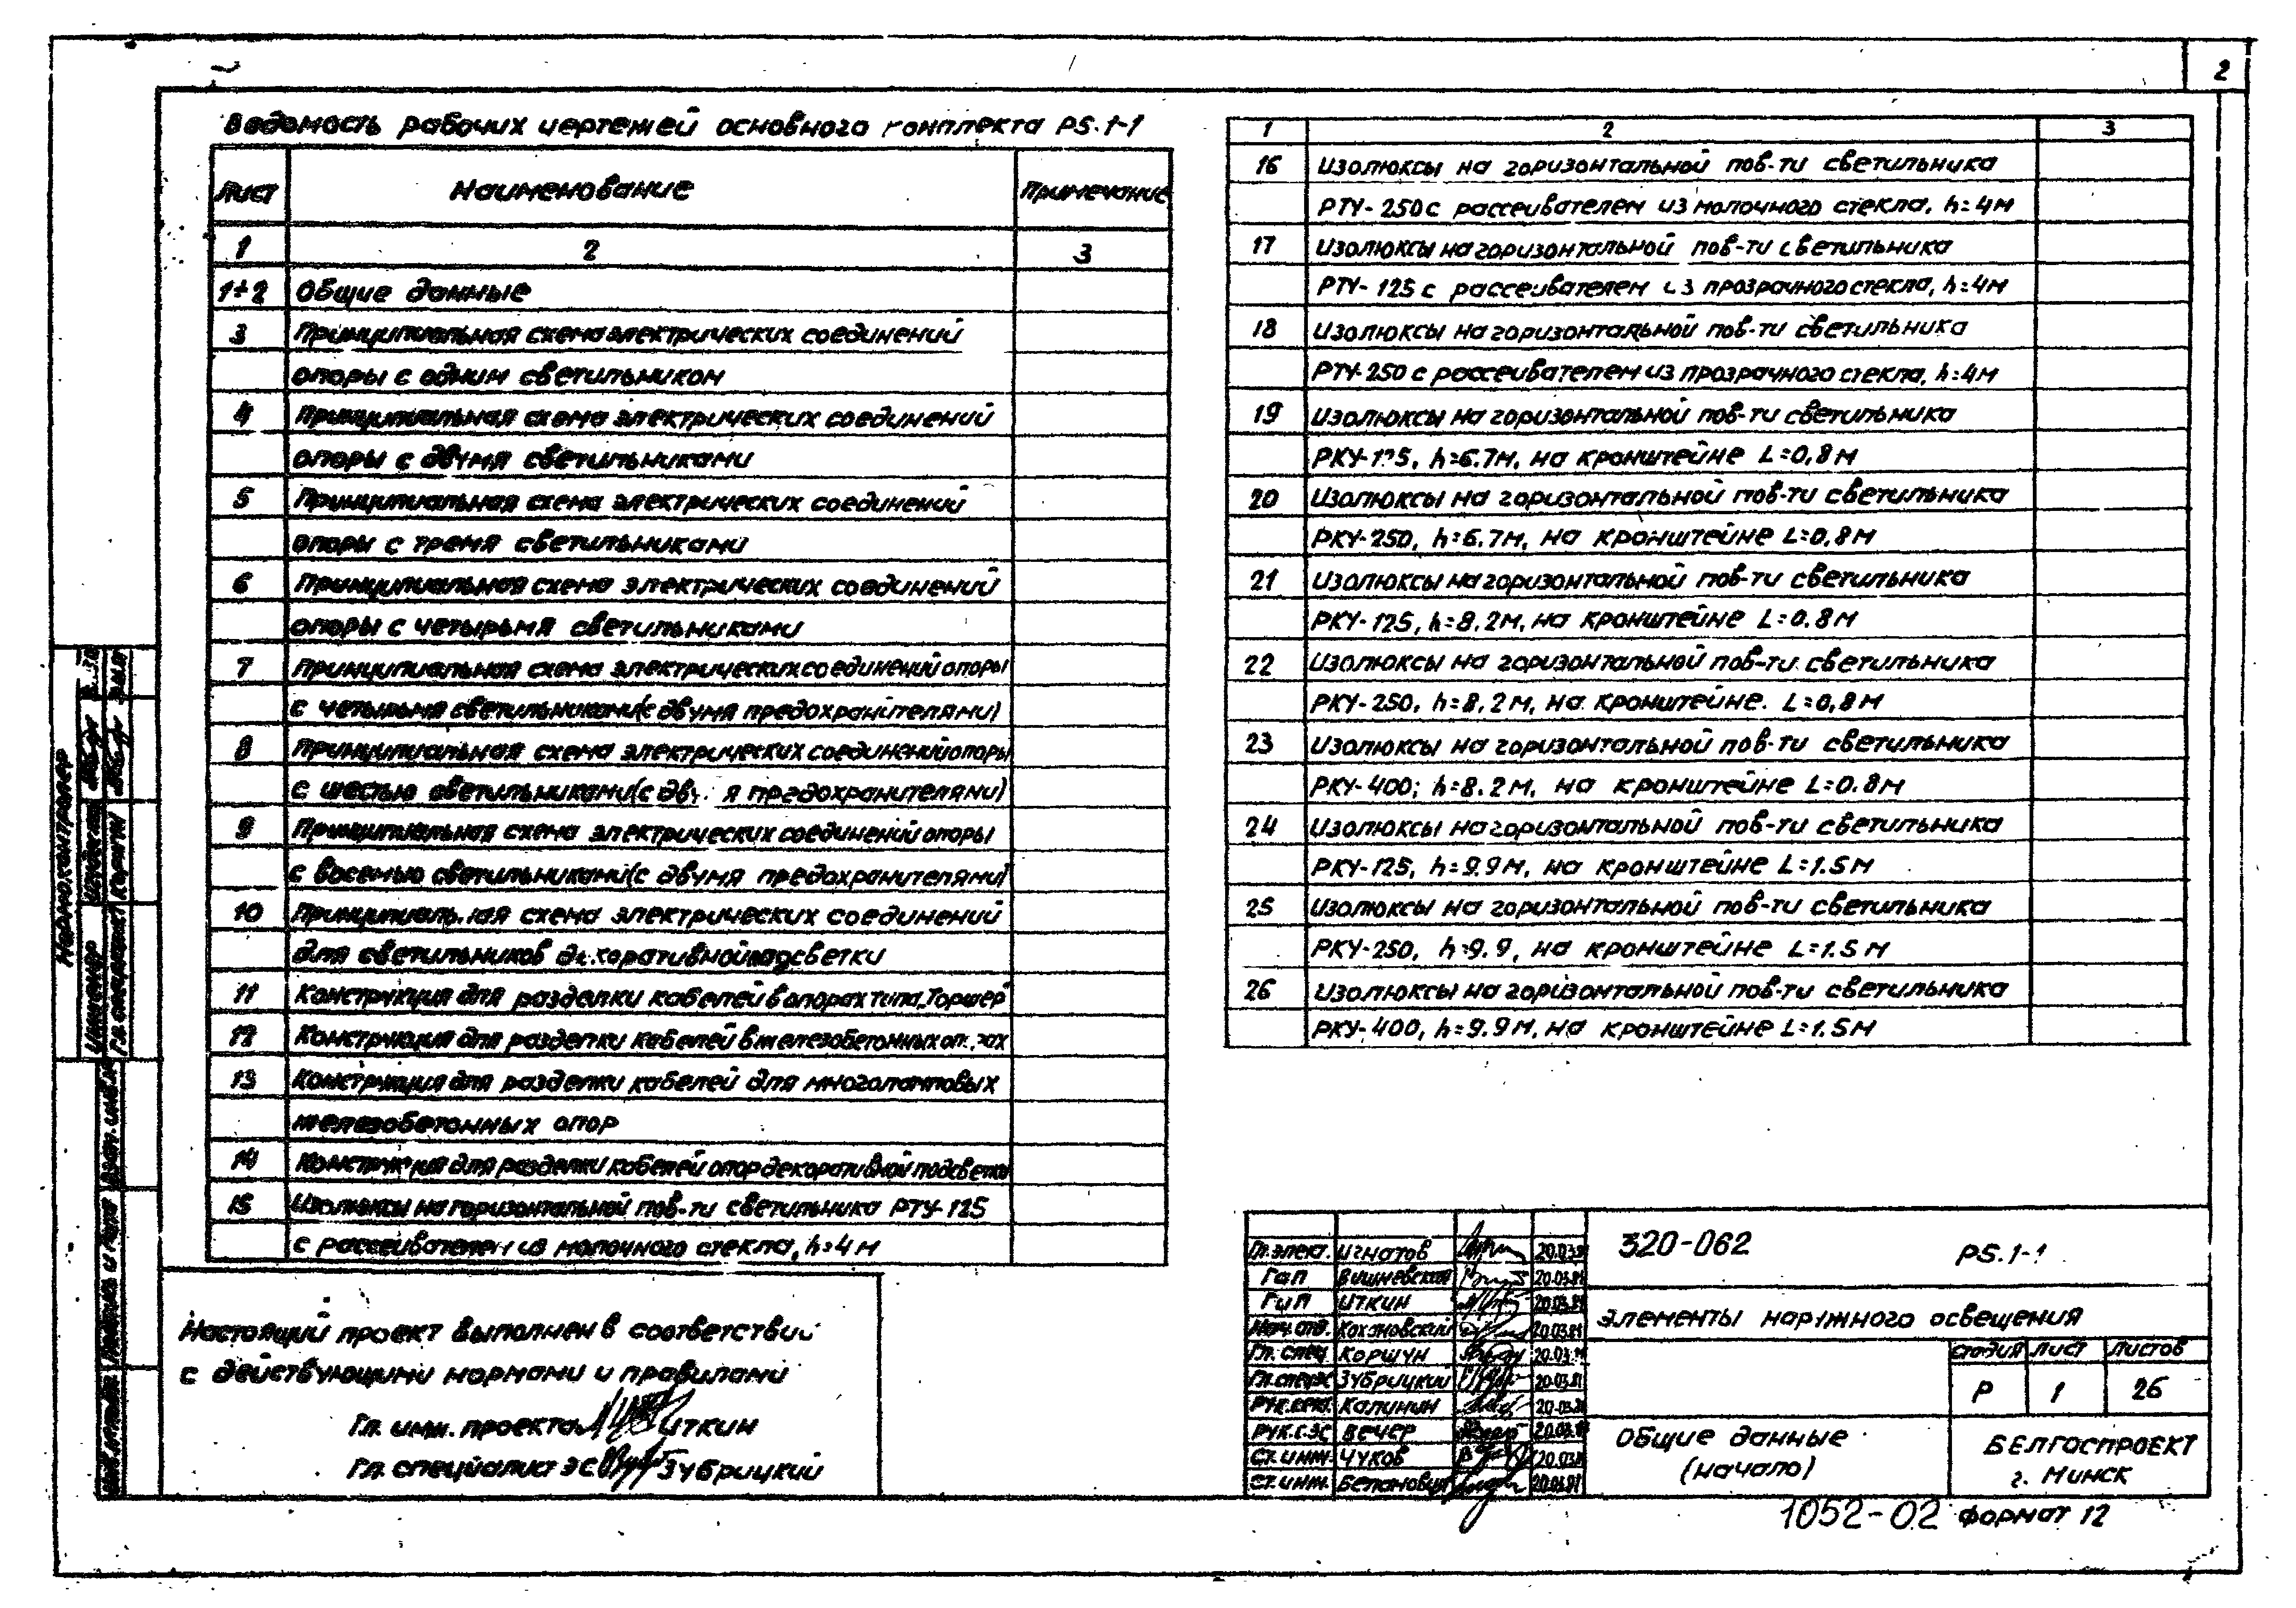 2
Ведомость рабочих чертежей основного комплекта PS.1-1
Лист Наименование Примечание
1 2 3
1÷2 Общие данные
3 Принципиальная схема электрических соединений
опоры с одним светильником
4 Принципиальная схема электрических соединений
опоры с двумя светильниками
5 Принципиальная схема электрических соединений
опоры с тремя светильниками
6 Принципиальная схема электрических соединений
опоры с четырьмя светильниками
7 Принципиальная схема электрических соединений опоры
с четырьмя светильниками (с двумя предохранителями)
8 Принципиальная схема электрических соединений опоры
с шестью светильниками (с двумя предохранителями)
9 Принципиальная схема электрических соединений опоры
с восемью светильниками (с двумя предохранителями)
10 Принципиальная схема электрических соединений
для светильников декоративной подсветки
11 Конструкция для разделки кабелей в опорах типа „Торшер"
12 Конструкция для разделки кабелей в железобетонных опорах
13 Конструкция для разделки кабелей для многоламповых
железобетонных опор
14 Конструкция для разделки кабелей опор декоративной подсветки
15 Изолюксы на горизонтальной пов-ти светильника РТУ-125
с рассеивателем из молочного стекла, h=4м
1 2 3
16 Изолюксы на горизонтальной пов-ти светильника
РТУ-250 с рассеивателем из молочного стекла, h=4м
17 Изолюксы на горизонтальной пов-ти светильника
РТУ-125 с рассеивателем из прозрачного стекла, h=4м
18 Изолюксы на горизонтальной пов-ти светильника
РТУ-250 с рассеивателем из прозрачного стекла, h=4м
19 Изолюксы на горизонтальной пов-ти светильника
РКУ-125, h=6.7м, на кронштейне L=0,8м
20 Изолюксы на горизонтальной пов-ти светильника
РКУ-250, h=6.7м, на кронштейне L=0,8м
21 Изолюксы на горизонтальной пов-ти светильника
РКУ-125, h=8.2м, на кронштейне L=0.8м
22 Изолюксы на горизонтальной пов-ти светильника
РКУ-250, h=8,2м, на кронштейне. L=0,8м
23 Изолюксы на горизонтальной пов-ти светильника
РКУ-400; h=8.2м, на кронштейне L=0.8м
24 Изолюксы на горизонтальной пов-ти светильника
РКУ-125, h=9.9м, на кронштейне L=1.5м
25 Изолюксы на горизонтальной пов-ти светильника
РКУ-250, h=9.9, на кронштейне L=1.5м
26 Изолюксы на горизонтальной пов-ти светильника
РКУ-400, h=9.9м, на кронштейне L=1.5м
Нормоконтролер
Инженер
Гл. специалист Коршун
Взам. инв. №
Подпись и дата
Настоящий проект выполнен в соответствии
с действующими нормами и правилами
Гл. инж. проекта Иткин
Гл. специалист ЭС Зубрицкий
Гл. элект. Игнатов 20.03.81
ГАП Вишневская 20.03.81
ГИП Иткин 20.03.81
Нач. отд. Кохановский 20.03.81
Гл. спец. Коршун 20.03.81
Гл. спец. ЭС Зубрицкий 20.03.81
Калинин 20.03.81
Рук. г. ЭС Вечер 20.03.81
Ст. инж. Чуков 20.03.81
Ст. инж. 20.03.81
320-062 PS.1-1
Элементы наружного освещения
Стадия Лист Листов
Р 1 26
Общие данные
(начало)
БЕЛГОСПРОЕКТ
г. Минск
1052-02 Формат 12